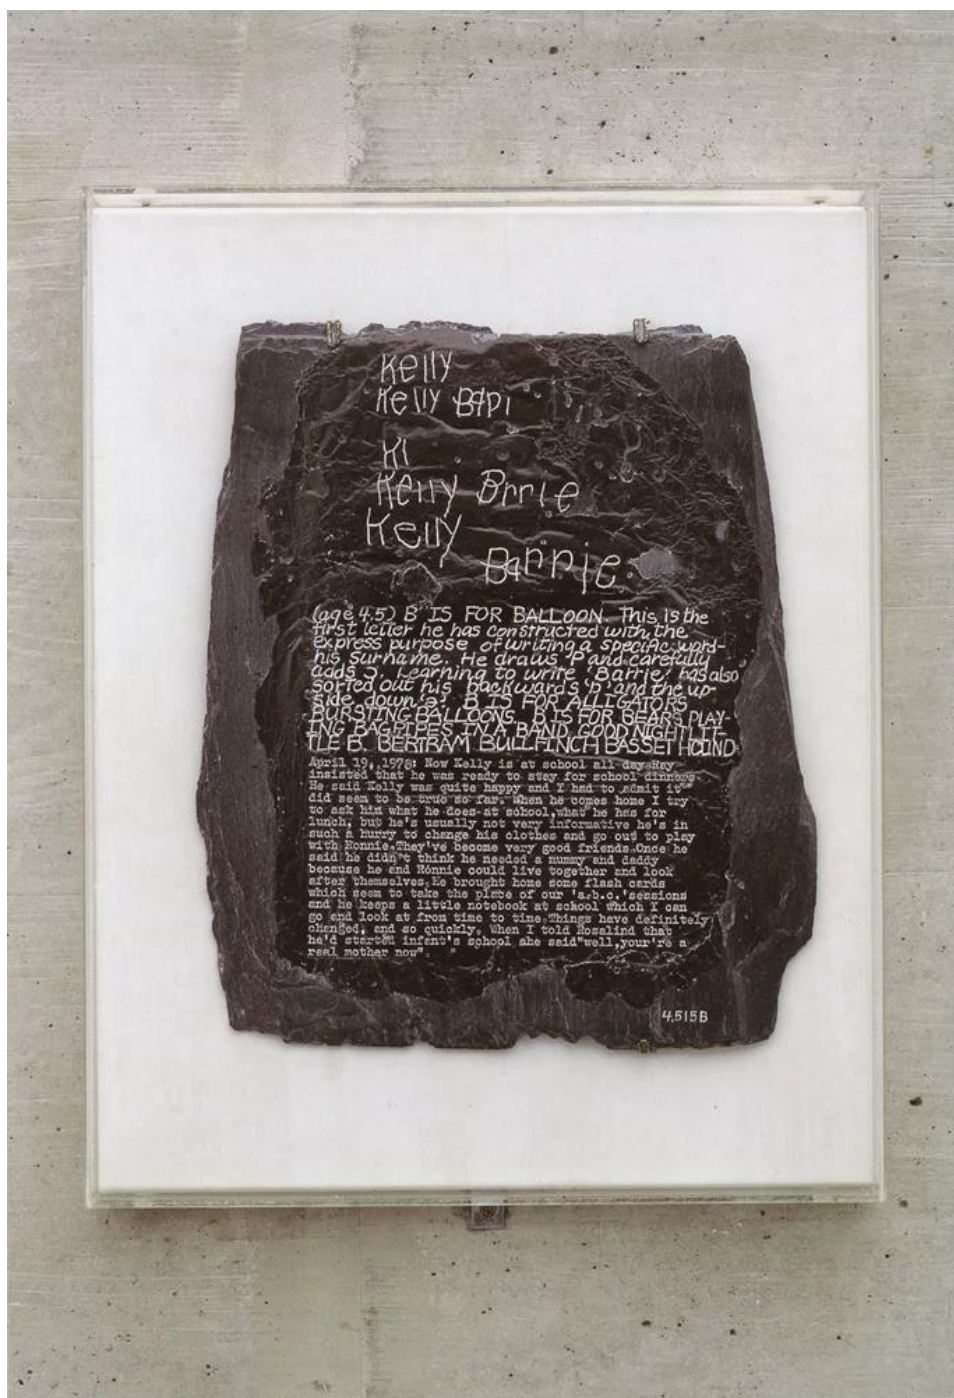 Kelly
Kelly BApi
KI
Kelly Brrie
Kelly
Barrie
(age 4.5) B IS FOR BALLOON. This is the
first letter he has constructed with the
express purpose of writing a specific word-
his surname. He draws 'P' and carefully
adds 'ɔ'. Learning to write 'Barrie' has also
sorted out his backwards 'b' and the up-
side down 'a'. B IS FOR ALLIGATORS
BURSTING BALLOONS. B IS FOR BEARS PLAY-
ING BAGPIPES IN A BAND. GOODNIGHT LIT-
TLE B. BERTRAM BULLFINCH BASSET HOUND.
April 19, 1978: Now Kelly is at school all day. Ray
insisted that he was ready to stay for school dinners.
He said Kelly was quite happy and I had to admit it
did seem to be true so far. When he comes home I try
to ask him what he does at school, what he has for
lunch, but he's usually not very informative he's in
such a hurry to change his clothes and go out to play
with Ronnie. They've become very good friends. Once he
said he didn't think he needed a mummy and daddy
because he and Ronnie could live together and look
after themselves. He brought home some flash cards
which seem to take the place of our 'a.b.c.' sessions
and he keeps a little notebook at school which I can
go and look at from time to time. Things have definitely
changed, and so quickly. When I told Rosalind that
he'd started infant's school she said "well, your're a
real mother now".
4.515B